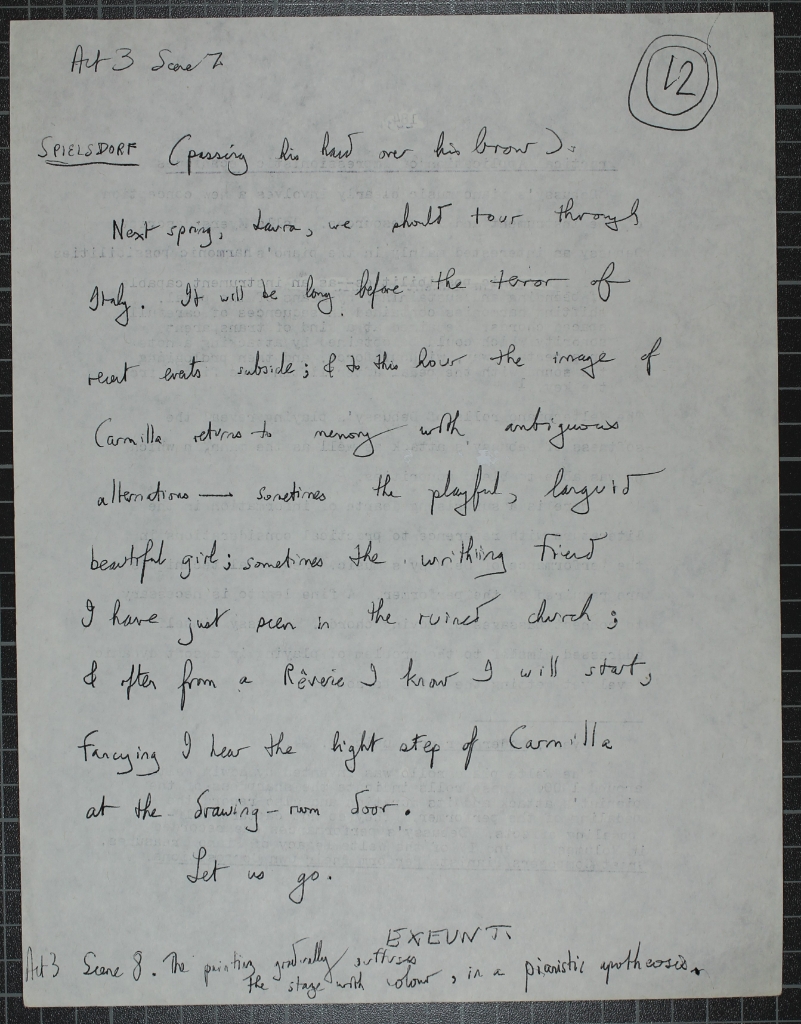 Act 3 Scene 7
12
SPIELSDORF (passing his hand over his brow).
Next spring, Laura, we should tour through
Italy. It will be long before the terror of
recent events subside; & to this hour the image of
Carmilla returns to memory with ambiguous
alternations — sometimes the playful, languid
beautiful girl; sometimes the writhing fiend
I have just seen in the ruined church;
& often from a Rêverie I know I will start,
fancying I hear the light step of Carmilla
at the drawing-room door.
Let us go.
EXEUNT.
Act 3 Scene 8. The painting gradually suffuses
the stage with colour, in a pianistic apotheosis.